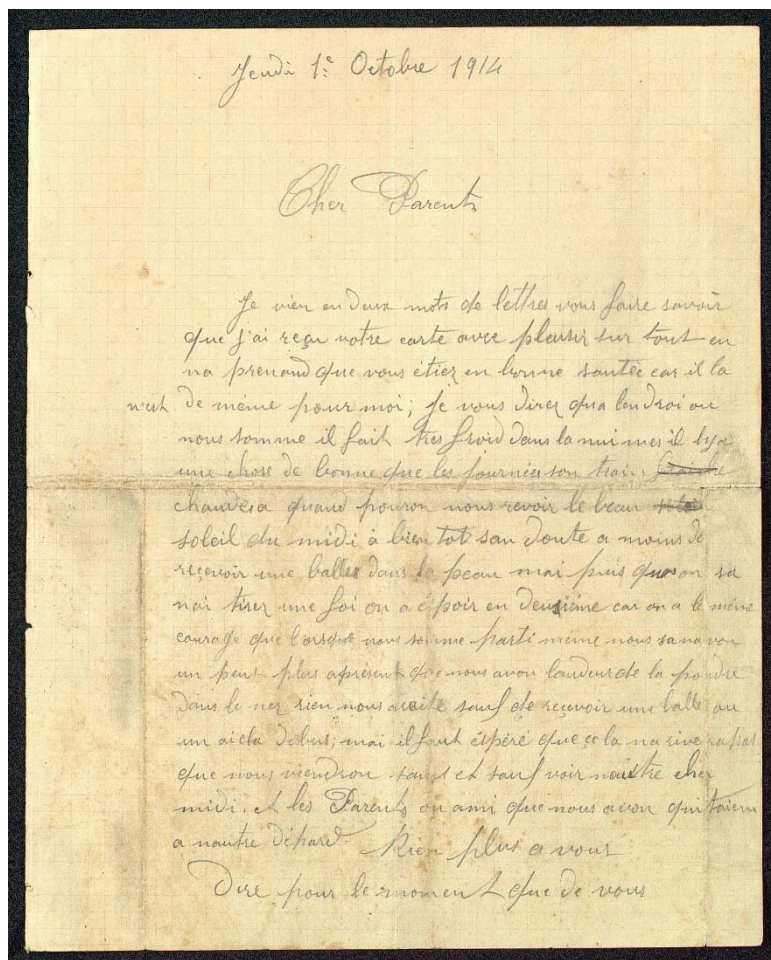 Jeudi 1e Octobre 1914
Cher Parents
Je vien en deux mots de lettres vous faire savoir
que j'ai reçu votre carte avec plaisir sur tout en
na prenand que vous étiez en bonne santée car il la
n'est de même pour moi; je vous direz qua lendroi ou
nous somme il fait tres froid dans la nui mes il lya
une chose de bonne que les journées son trais
chaudes a quand pouron nous revoir le beau
soleil du midi à bien tot san doute a moins de
reçevoir une balles dans la peau mai puis que on sa
nai tirez une foi on a éspoir en deusiéme car on a le même
courage que l'orsque nous somme parti même nous sanavon
un peut plus aprésent que nous avon laudeur de la poudre
dans le nez rien nous sauf de reçevoir une balle ou
un aicla dobus, mai il faut éspéré que çela na rivera pas
que nous viendron saust et sauf voir nautre cher
midi. et les Parents ou ami que nous avon qui taiem
a nautre dépard. Rien plus a vous
Dire pour le moment que de vous